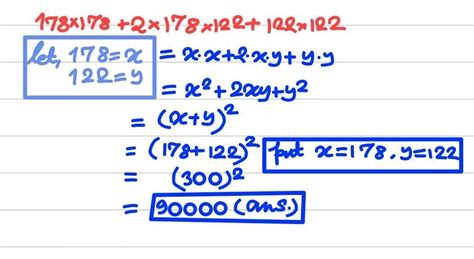 178×178 + 2×178×122 + 122×122
let, 178 = x
122 = y
= x·x + 2·x·y + y·y
= x² + 2xy + y²
= (x+y)²
= (178+122)² put x=178, y=122
= (300)²
= 90000 (ans.)